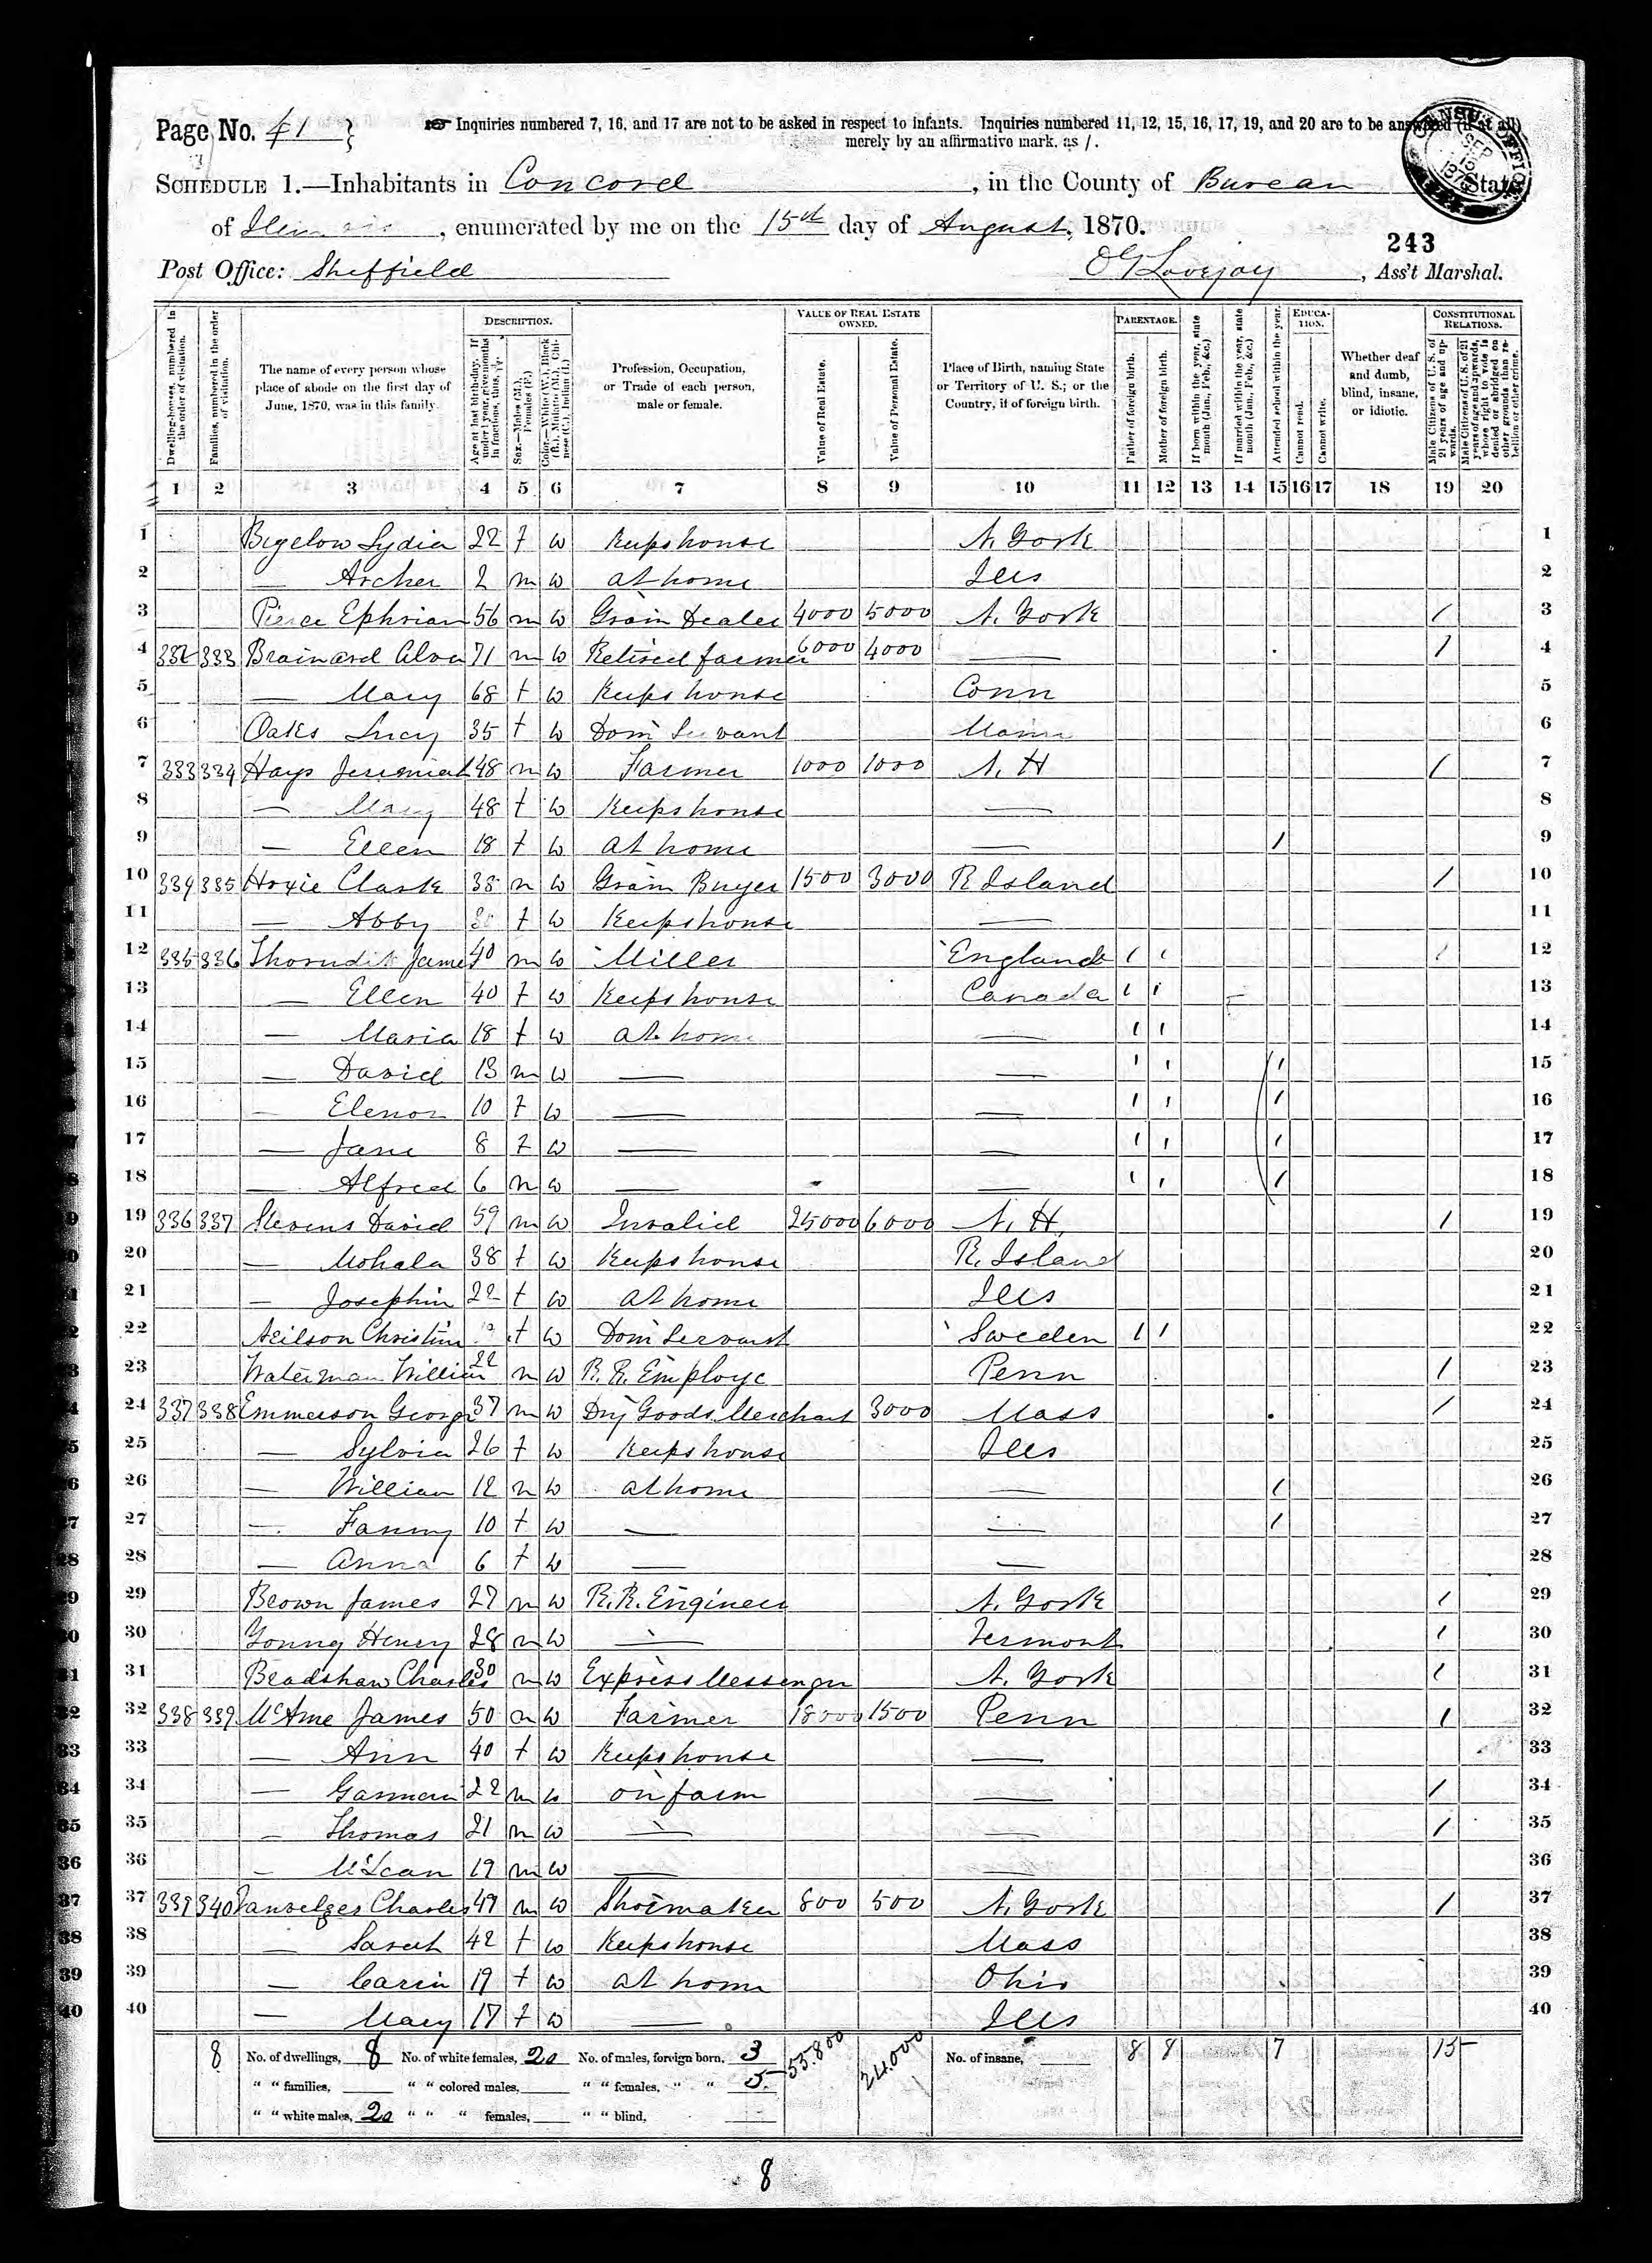 Page No. 41 }
☞ Inquiries numbered 7, 16, and 17 are not to be asked in respect to infants. Inquiries numbered 11, 12, 15, 16, 17, 19, and 20 are to be answered (if at all)
merely by an affirmative mark, as /.
SCHEDULE 1.—Inhabitants in Concord, in the County of Bureau, State
of Illinois, enumerated by me on the 15th day of August, 1870.
243
Post Office: Sheffield O G Lovejoy, Ass't Marshal.
CENSUS OFFICE SEP 15 187
Dwelling-houses, numbered in the order of visitation.
Families, numbered in the order of visitation.
The name of every person whose place of abode on the first day of June, 1870, was in this family.
DESCRIPTION.
Age at last birth-day. If under 1 year, give months in fractions, thus,
Sex.—Males (M.), Females (F.)
Color.—White (W.), Black (B.), Mulatto (M.), Chinese (C.), Indian (I.)
Profession, Occupation, or Trade of each person, male or female.
VALUE OF REAL ESTATE OWNED.
Value of Real Estate.
Value of Personal Estate.
Place of Birth, naming State or Territory of U. S.; or the Country, if of foreign birth.
PARENTAGE.
Father of foreign birth.
Mother of foreign birth.
If born within the year, state month (Jan., Feb., &c.)
If married within the year, state month (Jan., Feb., &c.)
Attended school within the year.
EDUCATION.
Cannot read.
Cannot write.
Whether deaf and dumb, blind, insane, or idiotic.
CONSTITUTIONAL RELATIONS.
Male Citizens of U. S. of 21 years of age and upwards.
Male Citizens of U. S. of 21 years of age and upwards, whose right to vote is denied or abridged on other grounds than rebellion or other crime.
1 2 3 4 5 6 7 8 9 10 11 12 13 14 15 16 17 18 19 20
1 Bigelow Lydia 22 f w Keeps house N. York 1
2 — Archer 2 m w at home Ills 2
3 Pierce Ephriam 56 m w Grain Dealer 4000 5000 N. York / 3
4 332 333 Brainard Alva 71 m w Retired farmer 6000 4000 — / 4
5 — Mary 68 f w Keeps house Conn 5
6 Oakes Lucy 35 f w Dom Servant Maine 6
7 333 334 Hays Jeremiah 48 m w Farmer 1000 1000 N. H / 7
8 — Mary 48 f w Keeps house — 8
9 — Ellen 18 f w at home — / 9
10 334 335 Hoxie Clark 38 m w Grain Buyer 1500 3000 R Island / 10
11 — Abby f w Keeps house — 11
12 335 336 James 40 m w Miller England / / / 12
13 — Ellen 40 f w Keeps house Canada / / 13
14 — Maria 18 f w at home — / / 14
15 — David 13 m w — — / / / 15
16 — Elenor 10 f w — — / / / 16
17 — Jane 8 f w — — / / / 17
18 — Alfred 6 m w — — / / / 18
19 336 337 Stevens David 59 m w Invalid 25000 6000 N. H. / 19
20 — Mohala 38 f w Keeps house R. Island 20
21 — Josephin 22 f w at home Ills 21
22 Neilson Christina f w Dom Servant Sweden / / 22
23 Waterman William 22 m w R. R. Employe Penn / 23
24 337 338 Emmerson George 37 m w Dry Goods Merchant 3000 Mass / 24
25 — Sylvia 26 f w Keeps house Ills 25
26 — William 12 m w at home — / 26
27 — Fanny 10 f w — — / 27
28 — Anna 6 f w — — 28
29 Brown James 27 m w R. R. Engineer N. York / 29
30 Young Henry 28 m w — Vermont / 30
31 Bradshaw Charles 30 m w Express Messenger N. York / 31
32 338 339 James 50 m w Farmer 18000 1500 Penn / 32
33 — Ann 40 f w Keeps house — 33
34 — 22 m w on farm — / 34
35 — Thomas 21 m w — — / 35
36 — McLean 19 m w — — 36
37 339 340 Charles 49 m w Shoemaker 800 500 N. York / 37
38 — Sarah 42 f w Keeps house Mass 38
39 — Carin 19 f w at home Ohio 39
40 — Mary 17 f w — Ills 40
8 No. of dwellings, 8 No. of white females, 20 No. of males, foreign born, 3 55.800 24.000 No. of insane, 8 8 7 15
" " families, " " colored males, " " females, " " 5
" " white males, 20 " " " females, " " blind,
8